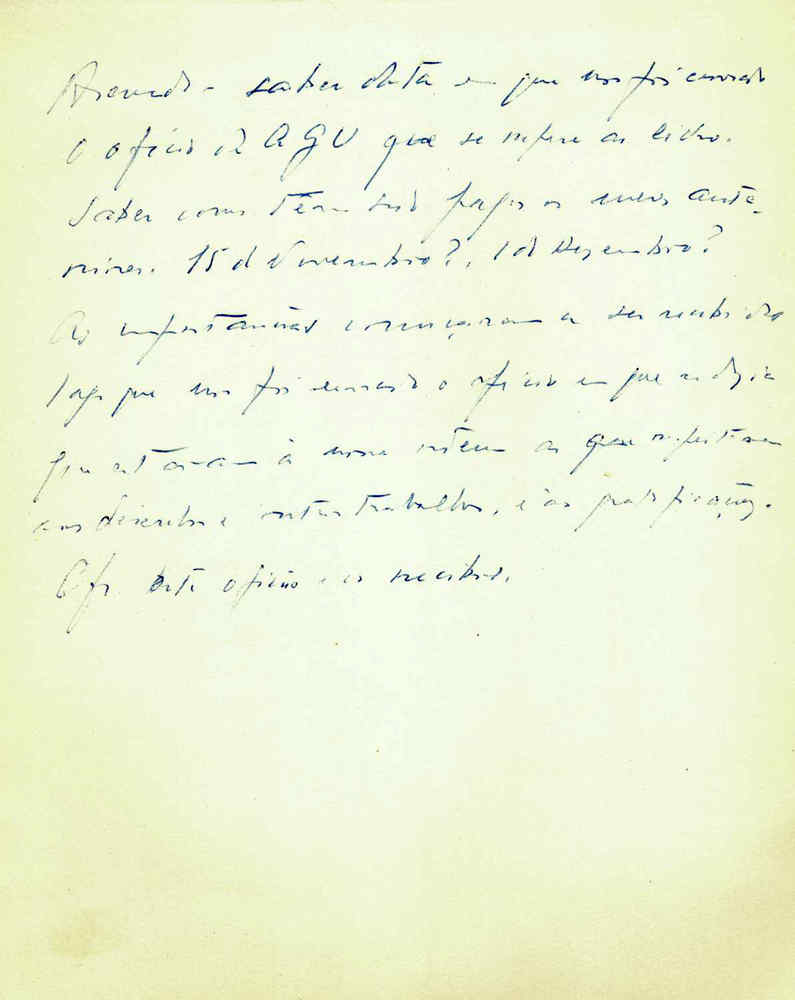 Azevedo - saber data em que nos foi enviado
o ofício da AGU que se refere ao
Saber como têm sido pagos os meses ante-
riores. 15 de Novembro?, 1 de Dezembro?
As importâncias começaram a ser recebidas
logo que nos foi enviado o ofício em que se dizia
que estavam à nossa ordem as que respeitavam
aos desenhos e outros trabalhos, e as gratificações.
Cfr. este ofício e os recibos.